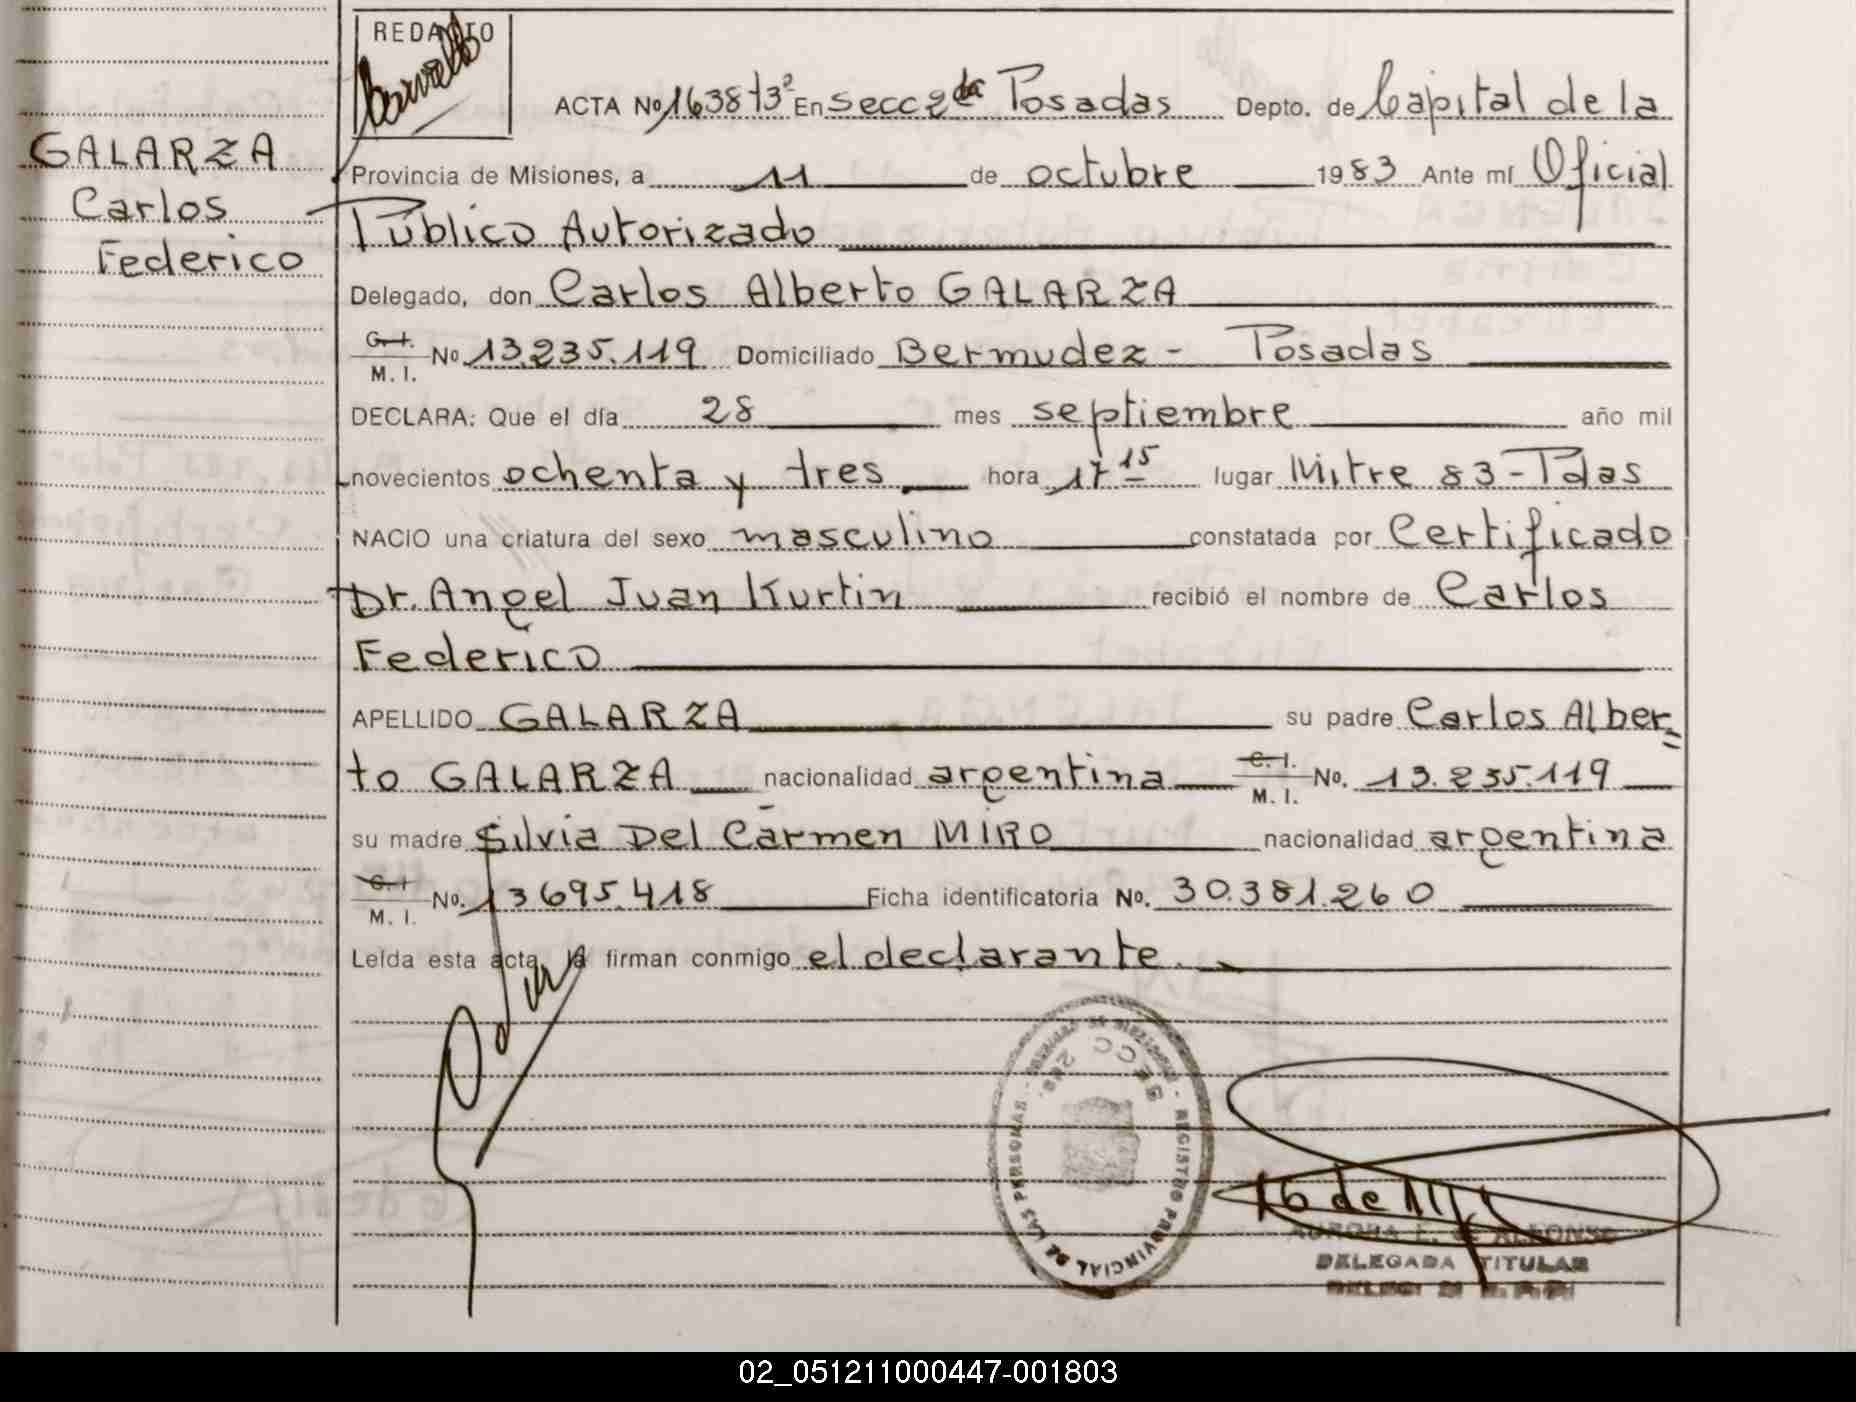 REDACTO
ACTA Nº 1638 t3º En secc 2da Posadas Depto. de Capital de la
GALARZA
Carlos
Federico
Provincia de Misiones, a 11 de octubre 1983 Ante mí Oficial
Público Autorizado
Delegado, don Carlos Alberto GALARZA
C. I. M. I. Nº 13.235.119 Domiciliado Bermudez - Posadas
DECLARA: Que el día 28 mes septiembre año mil
novecientos ochenta y tres hora 17 15 lugar Mitre 83 - Pdas
NACIO una criatura del sexo masculino constatada por Certificado
Dr. Angel Juan Kurtin recibió el nombre de Carlos
Federico
APELLIDO GALARZA su padre Carlos Alber=
to GALARZA nacionalidad argentina C. I. M. I. Nº. 13.235.119
su madre Silvia Del Carmen MIRO nacionalidad argentina
C. I. M. I. Nº. 13695.418 Ficha identificatoria Nº. 30.381.260
Leída esta acta, la firman conmigo el declarante.
REGISTRO PROVINCIAL DE LAS PERSONAS
SECC 2da.
DELEGADA TITULAR
02_051211000447-001803